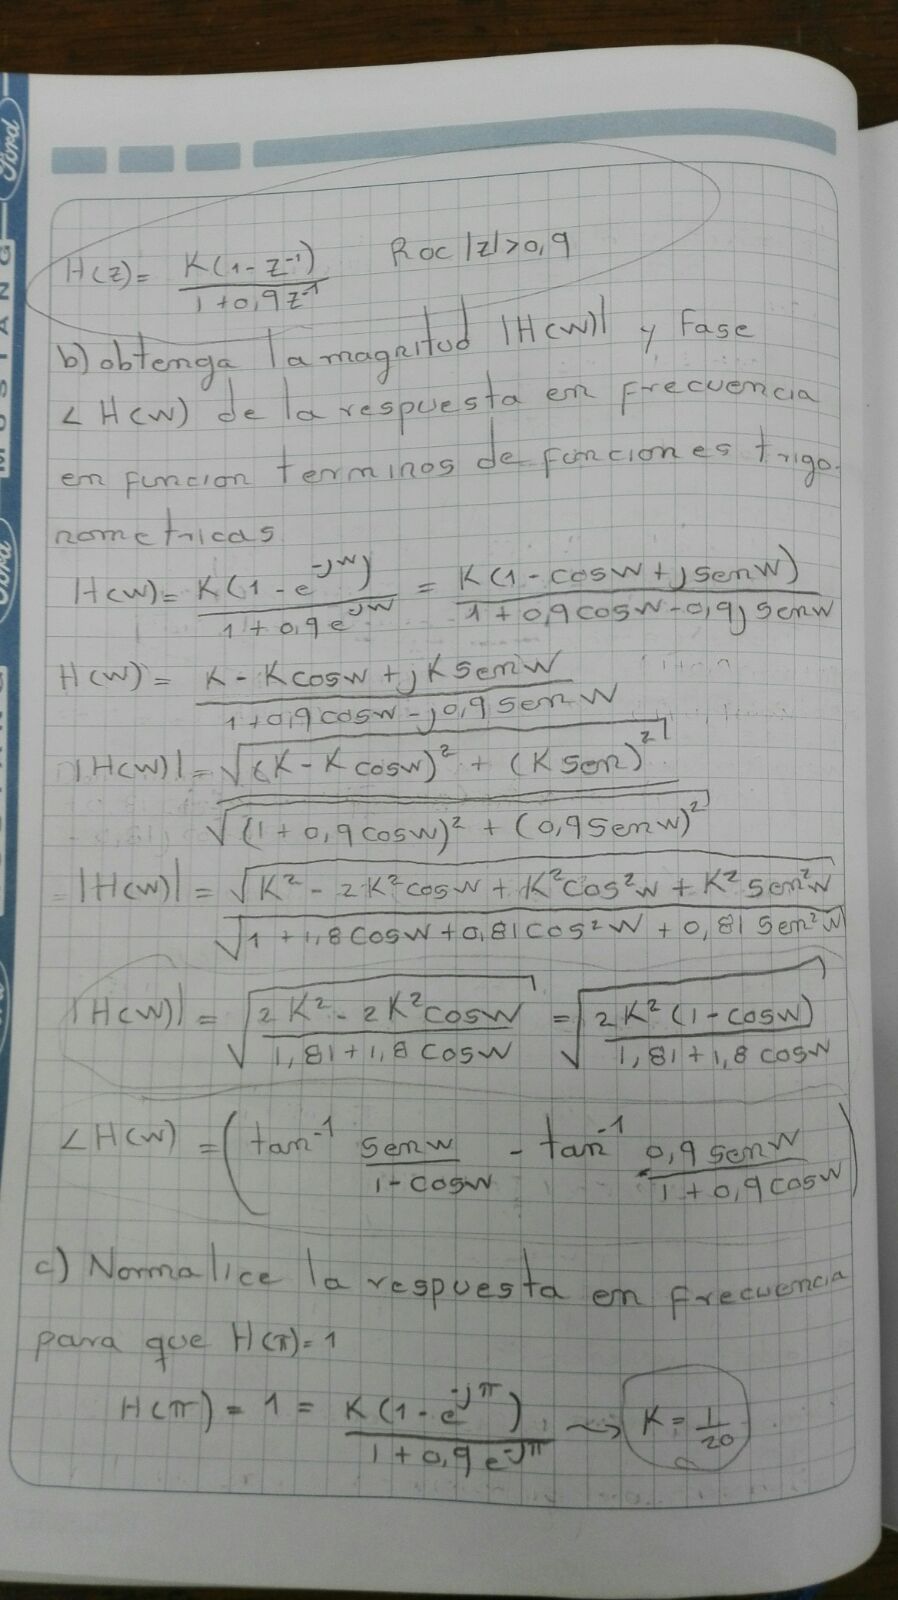 H(z)= K(1-z⁻¹) / 1+0,9z⁻¹    Roc |z|>0,9
b) obtenga la magnitud |H(w)| y Fase
∠H(w) de la respuesta en frecuencia
en funcion terminos de funciones trigo-
nometricas
H(w)= K(1-e^-jw) / 1+0,9e^-jw = K(1-cosw+jsenw) / 1+0,9cosw-0,9jsenw
H(w) = K-Kcosw+jKsenw / 1+0,9cosw-j0,9senw
|H(w)|= √(K-Kcosw)² + (Ksen)² / √(1+0,9cosw)² + (0,9senw)²
= |H(w)| = √K²-2K²cosw+K²cos²w+K²sen²w / √1+1,8cosw+0,81cos²w+0,81sen²w
|H(w)| = √2K²-2K²cosw / 1,81+1,8cosw = √2K²(1-cosw) / 1,81+1,8cosw
∠H(w) = (tan⁻¹ senw / 1-cosw - tan⁻¹ 0,9senw / 1+0,9cosw)
c) Normalice la respuesta en frecuencia
para que H(π)=1
H(π) = 1 = K(1-e^-jπ) / 1+0,9e^-jπ ⇝ K = 1/20
Ford
MUSTANG
Ford